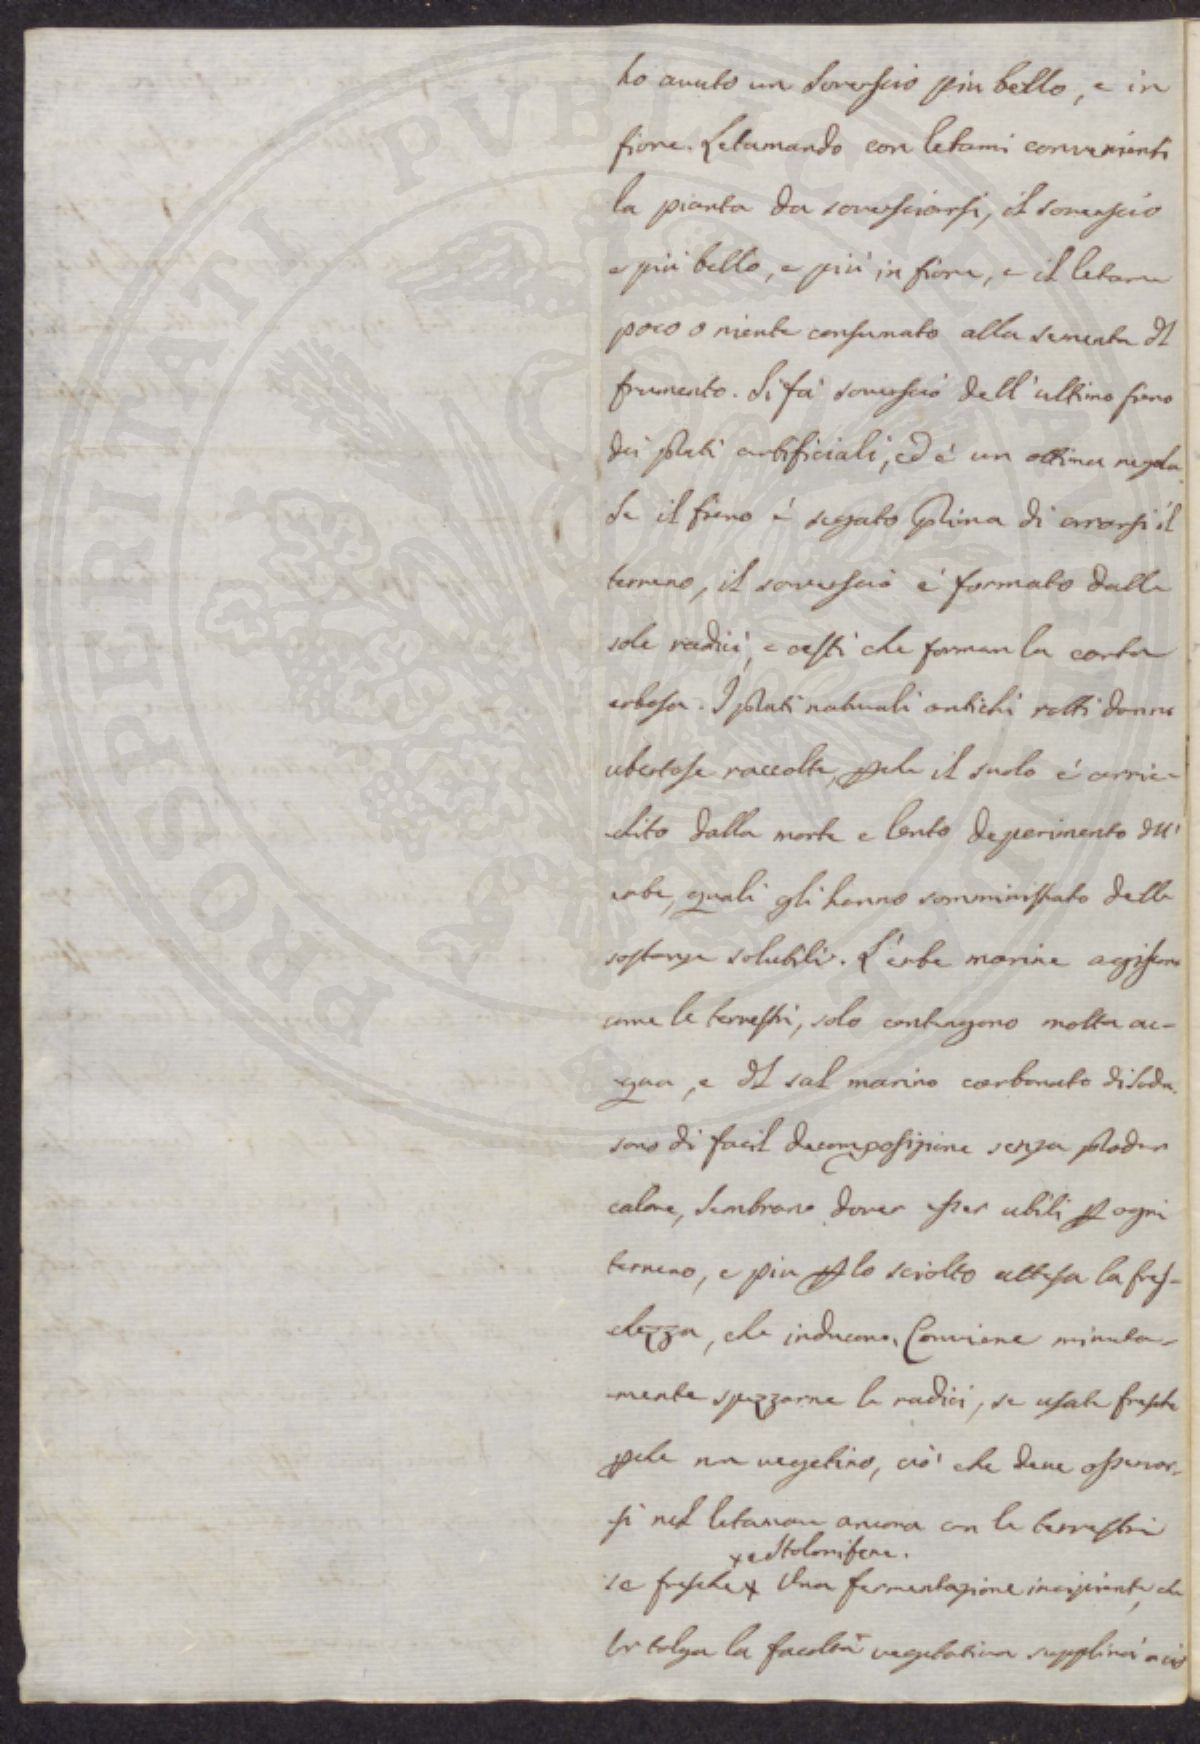 ho avuto un Soverscio piu bello, e in
fiore. Letamando con letami convenienti
la pianta da soversciarsi, il soverscio
e più bello, e più in fiore, e il letame
poco o niente consumato alla sementa del
frumento. Si fà soverscio dell'ultimo fieno
dei prati artificiali, ed è un ottima regola.
Se il fieno è segato prima di ararsi il
terreno, il soverscio è formato dalle
sole radici, e cesti che forman la cotta
erbosa. I prati naturali antichi rotti danno
ubertose raccolte, perche il suolo è arric-
chito dalla morte e lento deperimento dell'
erbe, quali gli hanno somministrato delle
sostanze solubili. L'erbe marine agiscono
come le terrestri, solo contengono molta ac-
qua, e del sal marino carbonato di soda.
sono di facil decomposizione senza proder
calore, Sembrano dover esser utili per ogni
terreno, e piu per lo sciolto attesa la fres-
chezza, che inducono. Conviene minuta-
mente spezzarne le radici, se usate fresche
perche non vegetino, ciò che deve osservar-
si nel letamare ancora con le terrestri
x e Stolonifere.
se fresche x Una fermentazione incipiente, che
lor tolga la facoltà vegetativa supplirà a ciò
PROSPERITATI PVBLICAE AVGENDAE